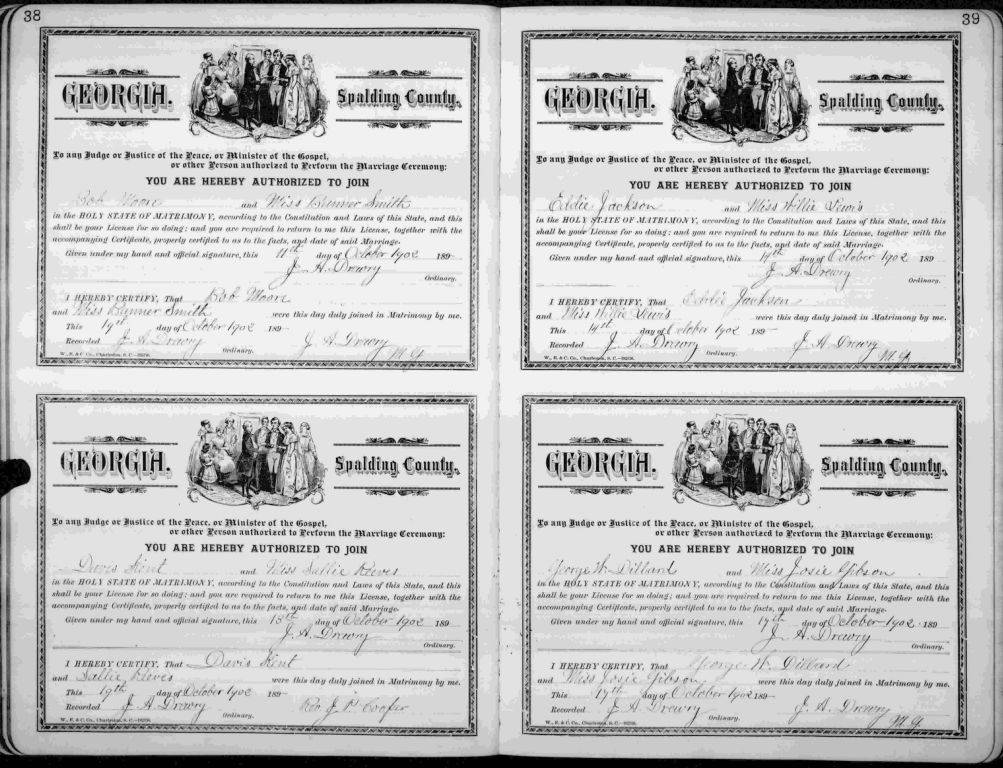 38
GEORGIA.
Spalding County.
To any Judge or Justice of the Peace, or Minister of the Gospel,
or other Person authorized to Perform the Marriage Ceremony:
YOU ARE HEREBY AUTHORIZED TO JOIN
Bob Moore and Miss Smith
in the HOLY STATE OF MATRIMONY, according to the Constitution and Laws of this State, and this
shall be your License for so doing; and you are required to return to me this License, together with the
accompanying Certificate, properly certified to as to the facts, and date of said Marriage.
Given under my hand and official signature, this 11th day of October 1902 189
J. A. Drewry
Ordinary.
I HEREBY CERTIFY, That Bob Moore
and Miss Smith were this day duly joined in Matrimony by me.
This 19th day of October 1902 189
Recorded J. A. Drewry Ordinary. J. A. Drewry
W., E. & C. Co., Charleston, S. C.
Davis Kent and Miss Sallie Reeves
GEORGIA.
Spalding County.
To any Judge or Justice of the Peace, or Minister of the Gospel,
or other Person authorized to Perform the Marriage Ceremony:
YOU ARE HEREBY AUTHORIZED TO JOIN
in the HOLY STATE OF MATRIMONY, according to the Constitution and Laws of this State, and this
shall be your License for so doing; and you are required to return to me this License, together with the
accompanying Certificate, properly certified to as to the facts, and date of said Marriage.
Given under my hand and official signature, this 18th day of October 1902 189
J. A. Drewry
Ordinary.
I HEREBY CERTIFY, That Davis Kent
and Sallie Reeves were this day duly joined in Matrimony by me.
This 19th day of October 1902 189
Recorded J. A. Drewry Ordinary. Rev J. P. Cooper
W., E. & C. Co., Charleston, S. C.
39
GEORGIA.
Spalding County.
To any Judge or Justice of the Peace, or Minister of the Gospel,
or other Person authorized to Perform the Marriage Ceremony:
YOU ARE HEREBY AUTHORIZED TO JOIN
Eddie Jackson and Miss Willie Lewis
in the HOLY STATE OF MATRIMONY, according to the Constitution and Laws of this State, and this
shall be your License for so doing; and you are required to return to me this License, together with the
accompanying Certificate, properly certified to as to the facts, and date of said Marriage.
Given under my hand and official signature, this 14th day of October 1902 189
J. A. Drewry
Ordinary.
I HEREBY CERTIFY, That Eddie Jackson
and Miss Willie Lewis were this day duly joined in Matrimony by me.
This 14th day of October 1902 189
Recorded J. A. Drewry Ordinary. J. A. Drewry
W., E. & C. Co., Charleston, S. C.
GEORGIA.
Spalding County.
To any Judge or Justice of the Peace, or Minister of the Gospel,
or other Person authorized to Perform the Marriage Ceremony:
YOU ARE HEREBY AUTHORIZED TO JOIN
George W. Dillard and Miss Josie Gibson
in the HOLY STATE OF MATRIMONY, according to the Constitution and Laws of this State, and this
shall be your License for so doing; and you are required to return to me this License, together with the
accompanying Certificate, properly certified to as to the facts, and date of said Marriage.
Given under my hand and official signature, this 17th day of October 1902 189
J. A. Drewry
Ordinary.
I HEREBY CERTIFY, That George W. Dillard
and Miss Josie Gibson were this day duly joined in Matrimony by me.
This 17th day of October 1902 189
Recorded J. A. Drewry Ordinary. J. A. Drewry
W., E. & C. Co., Charleston, S. C.